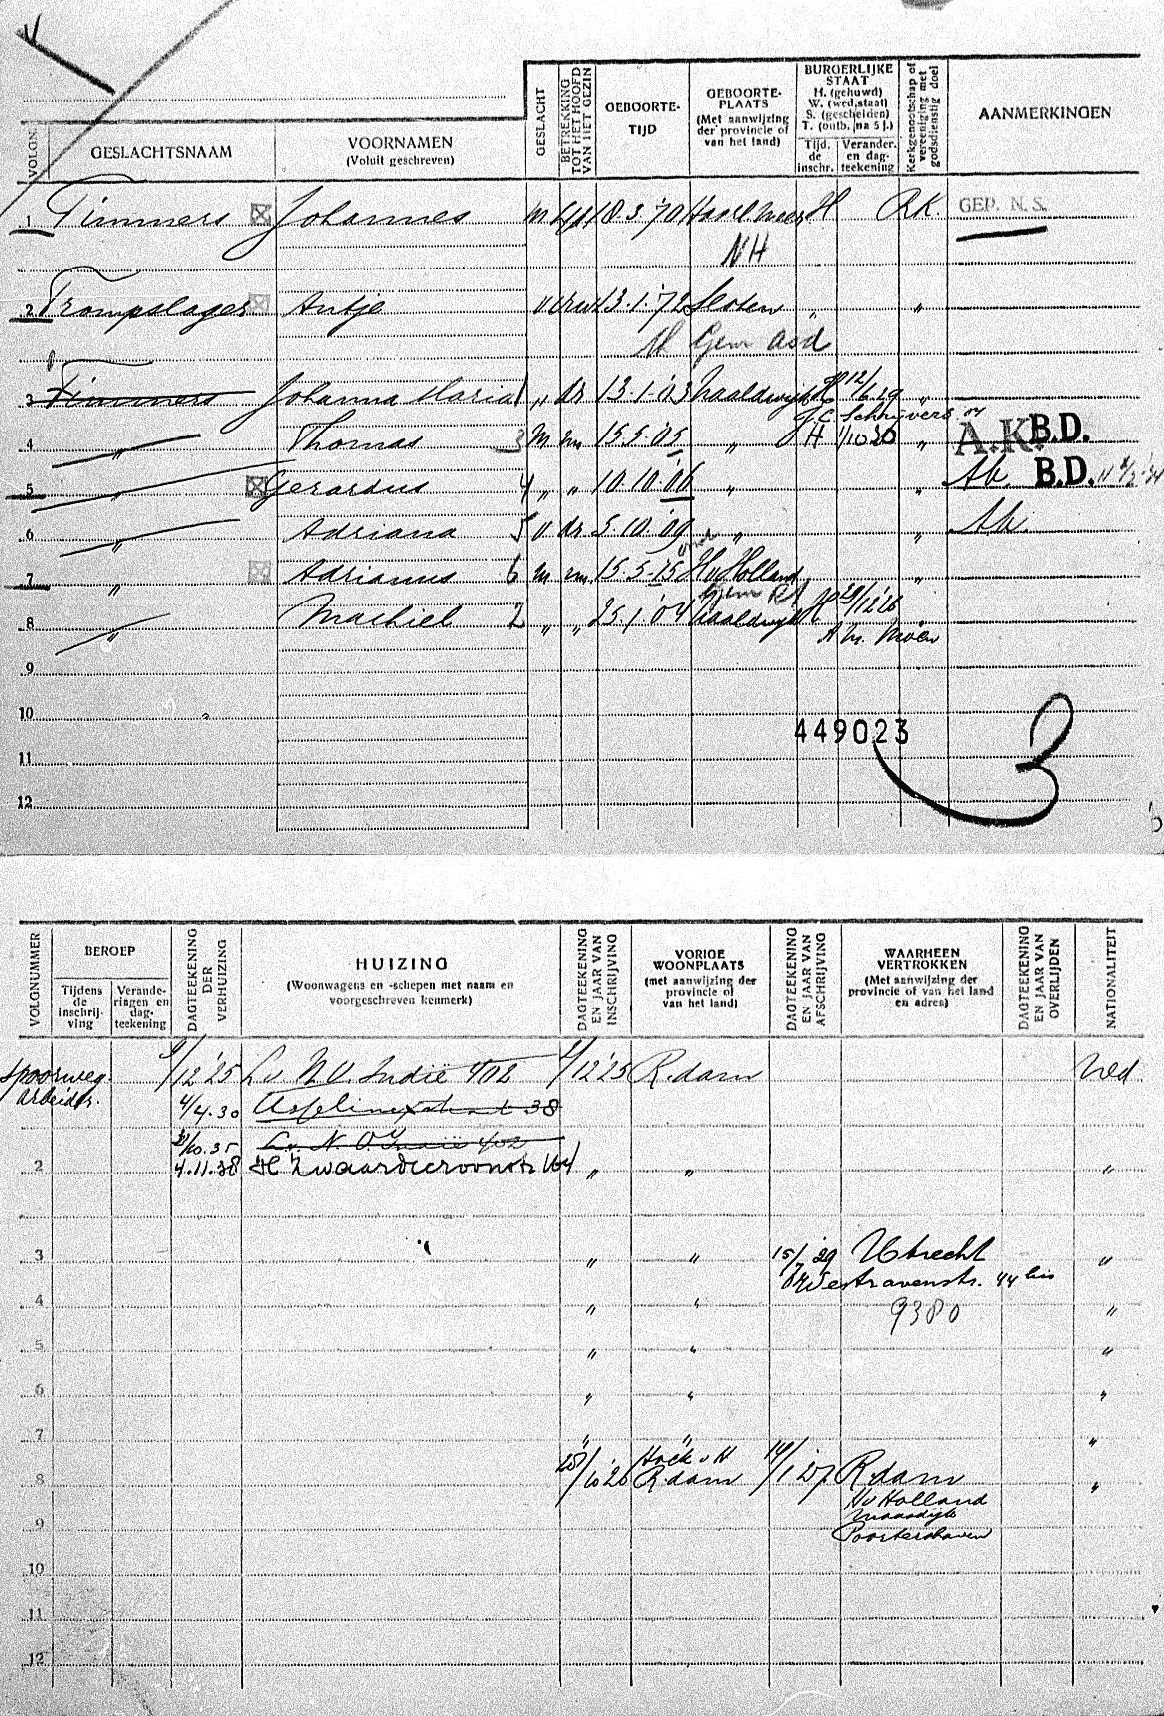 VOLGN.
GESLACHTSNAAM
VOORNAMEN
(Voluit geschreven)
GESLACHT
BETREKKING TOT HET HOOFD VAN HET GEZIN
GEBOORTE-
TIJD
GEBOORTE-
PLAATS
(Met aanwijzing
der provincie of
van het land)
BURGERLIJKE
STAAT
H. (gehuwd)
W. (wed. staat)
S. (gescheiden)
T. (ontb. na 5 j.)
Tijd.
de
inschr.
Verander.
en dag-
teekening
Kerkgenootschap of vereeniging met godsdienstig doel
AANMERKINGEN
1 Timmers Johannes m 18.3.'70 H R.K. GEP. N.S.
NH
2 Trompslager Antje " vrw 13.1.'72 Sloten " "
Gem Asd
3 Timmers Johanna Maria 1 " dr 13.1.'03 Naaldwijk H 12/6.29 "
J.C. Schrijvers
4 " Thomas 3 m zn 15.5.05 " H 1/10 30 " A.K. B.D.
5 " Gerardus 4 " " 10.10.06 " " Ab B.D.
6 " Adriana 5 v dr 5.10.'09 " " Ab
7 " Adrianus 6 m zn 15.5.15 H v Holland "
8 " Machiel 2 " " 25.1.'04 Naaldwijk H 29/12 26
9
10
449023
3
11
12
VOLGNUMMER
BEROEP
Tijdens
de
inschrij-
ving
Verande-
ringen en
dag-
teekening
DAGTEEKENING DER VERHUIZING
HUIZING
(Woonwagens en -schepen met naam en
voorgeschreven kenmerk)
DAGTEEKENING EN JAAR VAN INSCHRIJVING
VORIGE
WOONPLAATS
(met aanwijzing der
provincie of
van het land)
DAGTEEKENING EN JAAR VAN AFSCHRIJVING
WAARHEEN
VERTROKKEN
(Met aanwijzing der
provincie of van het land
en adres)
DAGTEEKENING EN JAAR VAN OVERLIJDEN
NATIONALITEIT
spoorweg- /12'25 L. v. N.O. Indië 402 /12'25 R.dam Ned
arbeider. 4/4.30 Asselijnstraat 38
/10.35 L. v. N.O. Indië 402
2 4.11.38 Zwaardecroonstr 164 " " "
3 " " 15/7 '29 Utrecht "
Westravenstr. 44 bis
4 " " 9380 "
5 " " "
6 " " "
7 " " "
Hoek v H
8 /10'26 R.dam 14/1 27 R.dam "
H v Holland
Maasdijk
9 Poortershaven
10
11
12